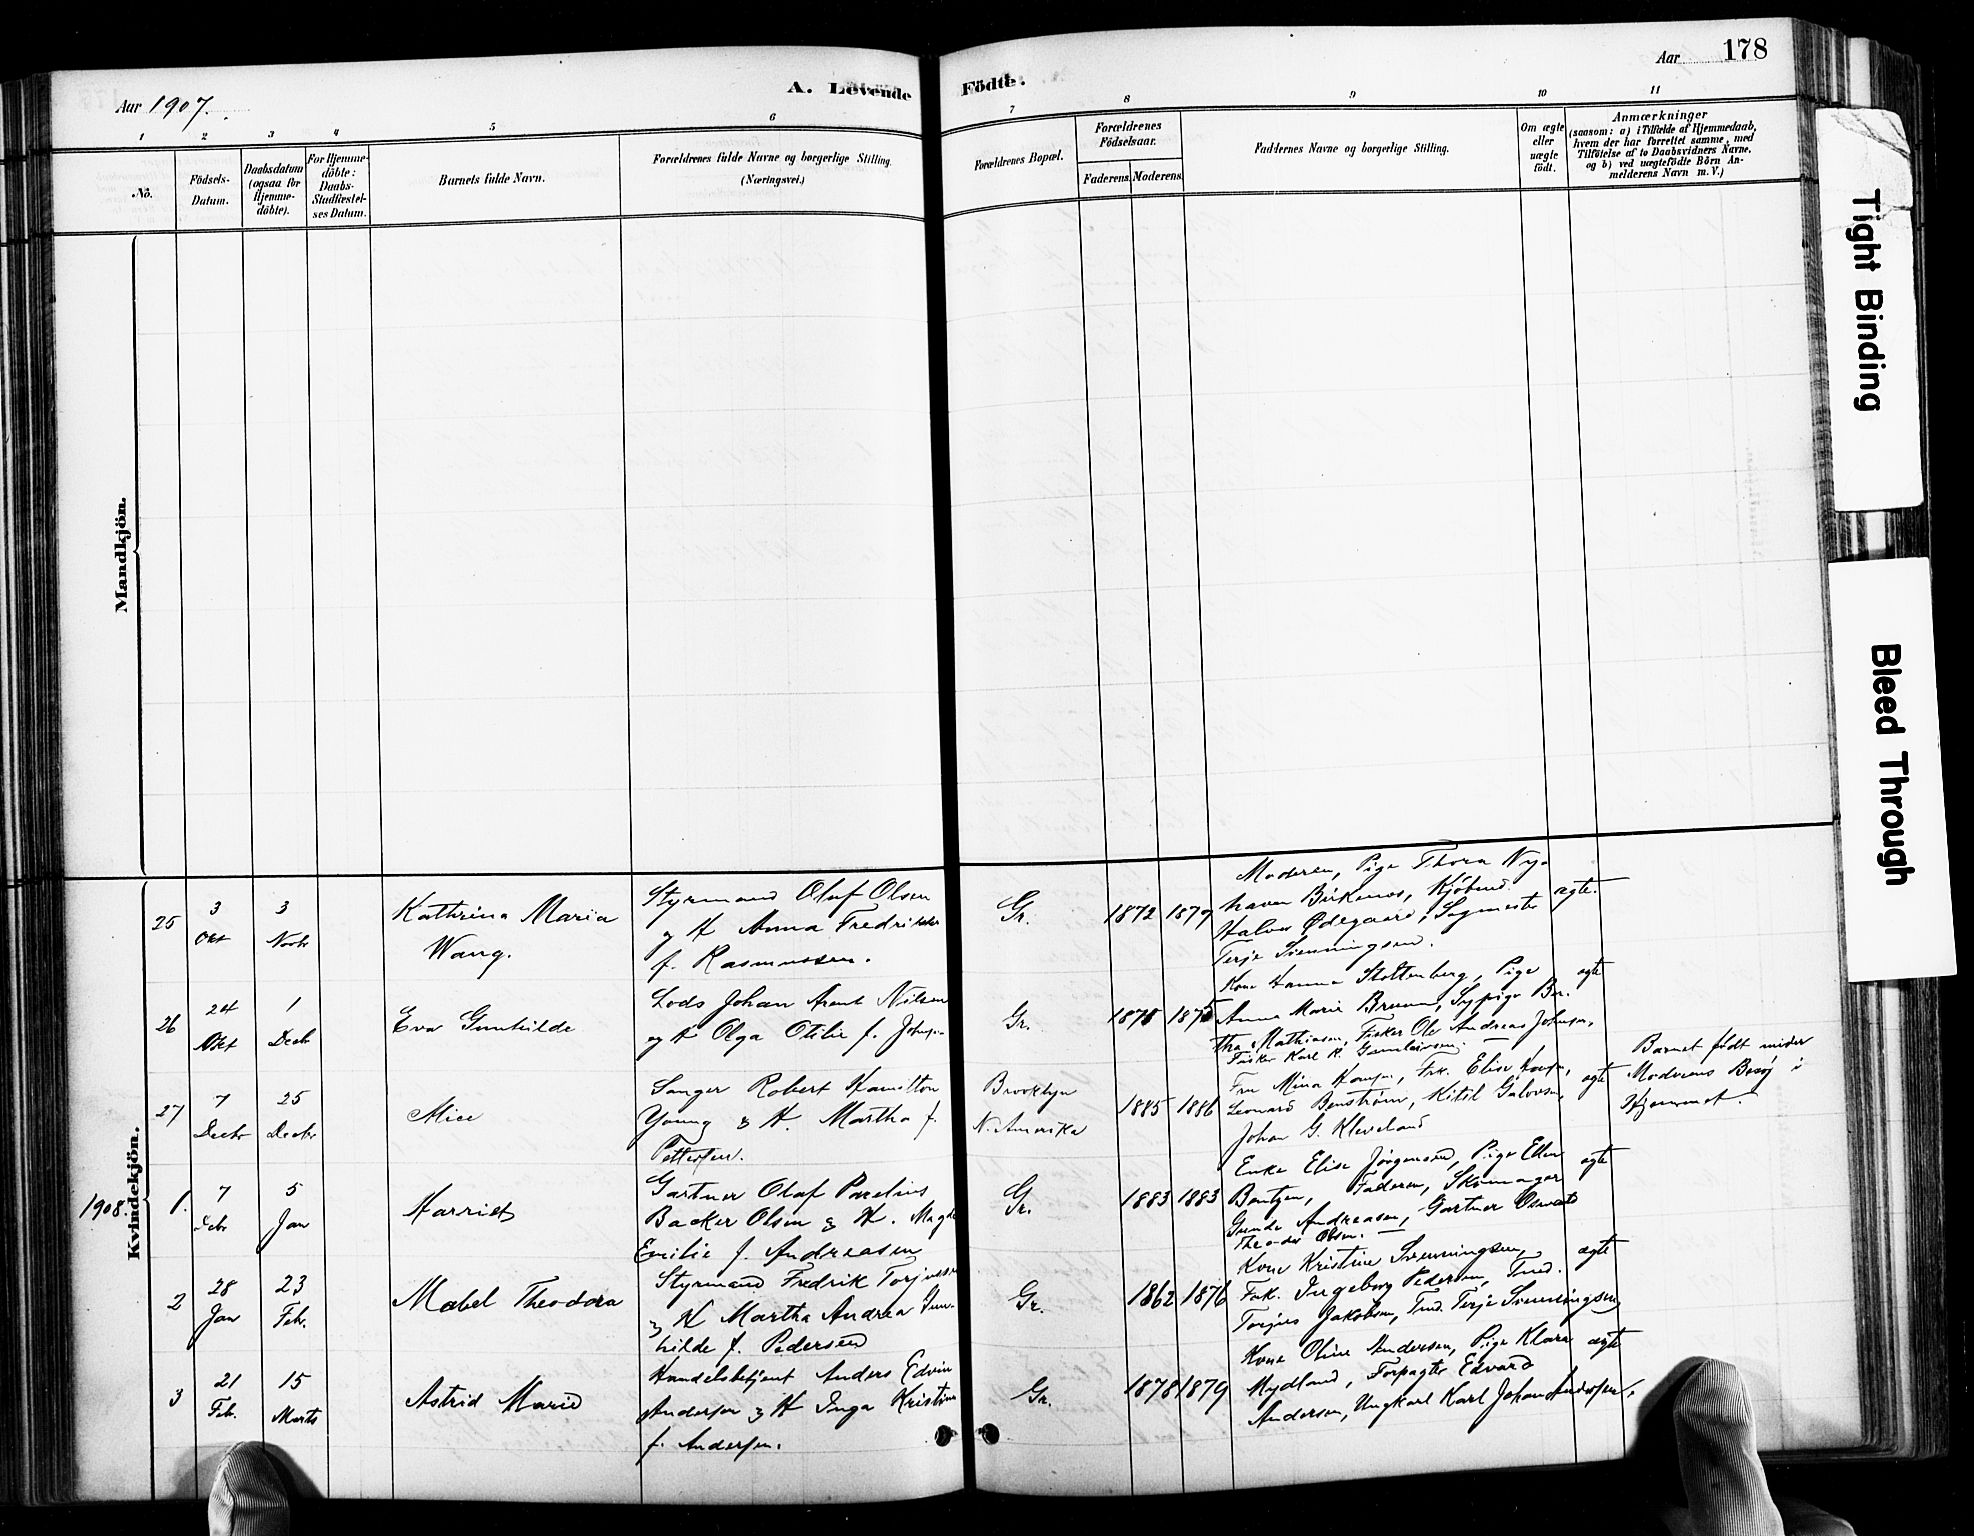 Aar 1907.
A. Levende Födte.
Aar 178
1 2 3 4 5 6 7 8 9 10 11
No.
Födsels-Datum.
Daabsdatum (ogsaa for Hjemme-döbte).
For Hjemme-döbte: Daabs-Stadfæstel-ses Datum.
Barnets fulde Navn.
Forældrenes fulde Navne og borgerlige Stilling.
(Næringsvei.)
Forældrenes Bopæl.
Forældrenes Födselsaar.
Faderens. Moderens.
Faddernes Navne og borgerlige Stilling.
Om ægte eller uægte födt.
Anmærkninger
(saasom: a) i Tilfælde af Hjemmedaab,
hvem der har forrettet samme, med
Tilföielse af to Daabsvidners Navne,
og b) ved uægtefödte Börn An-
melderens Navn m. V.)
Mandkjön.
Kvindekjön.
25
3 Okt
3 Novbr
Kathrina Maria
Wang.
Styrmand Oluf Olsen
og H Anna Fredrikke
f. Rasmussen.
Gr.
1872 1879
Moderen, Pige Thora Ny-
haven Birkenes, Kjöbmd.
Halvor Ødegaard, Sagmester
Terje Svenningsen.
ægte.
26
24 Okt
1 Decbr
Eva Gunhilde
Lods Johan Arent Nilsen
og H Olga Otilie f. Johnsen
Gr.
1875 1875
Kone Hanna Stoltenberg, Pige
Anna Marie Bruun, Sypige Ber-
tha Mathiasen, Fisker Ole Andreas Johnsen,
Fisker Karl R. Gunleivsen.
ægte
27
7 Decbr
25 Decbr
Alice
Sanger Robert Hamilton
Young & H. Martha f.
Pettersen.
Brooklyn
N. Amerika
1885 1886
Fru Mina , Frk. Elise ,
Leonard Benström, Kitil ,
Johan G. Kleveland
ægte
Barnet födt under
Moderens Besög i
Hjemmet.
1908.
1.
7 Decbr
5 Jan
Harriet
Gartner Olaf Parelius
Backer Olsen & H. Magda
Emilie f. Andreasen
Gr.
1883 1883
Enke Elise Jörgensen, Pige Ellen
Bentzen, Faderen, Skomager
Andreasen, Gartner Oswald
Theodor Olsen.
ægte
2
28 Jan
23 Feb.
Mabel Theodora
Styrmand Fredrik Torjusen
& H Martha Andrea Gun-
hilde f. Pedersen
Gr.
1862 1876
Kone Kristine Svenningsen,
Frk. Ingeborg Pedersen, Tmd.
Torjus Jakobsen, Tmd. Terje Svenningsen
ægte
3
21 Feb.
15 Marts
Astrid Marie
Handelsbetjent Anders Edvin
Andersen & H Inga Kristine
f. Andersen.
Gr.
1878 1879
Kone Oline Andersen, Pige Klara
Mydland, Forpagter Edvard
Andersen, Ungkarl Karl Johan Andersen.
ægte
Tight Binding
Bleed Through